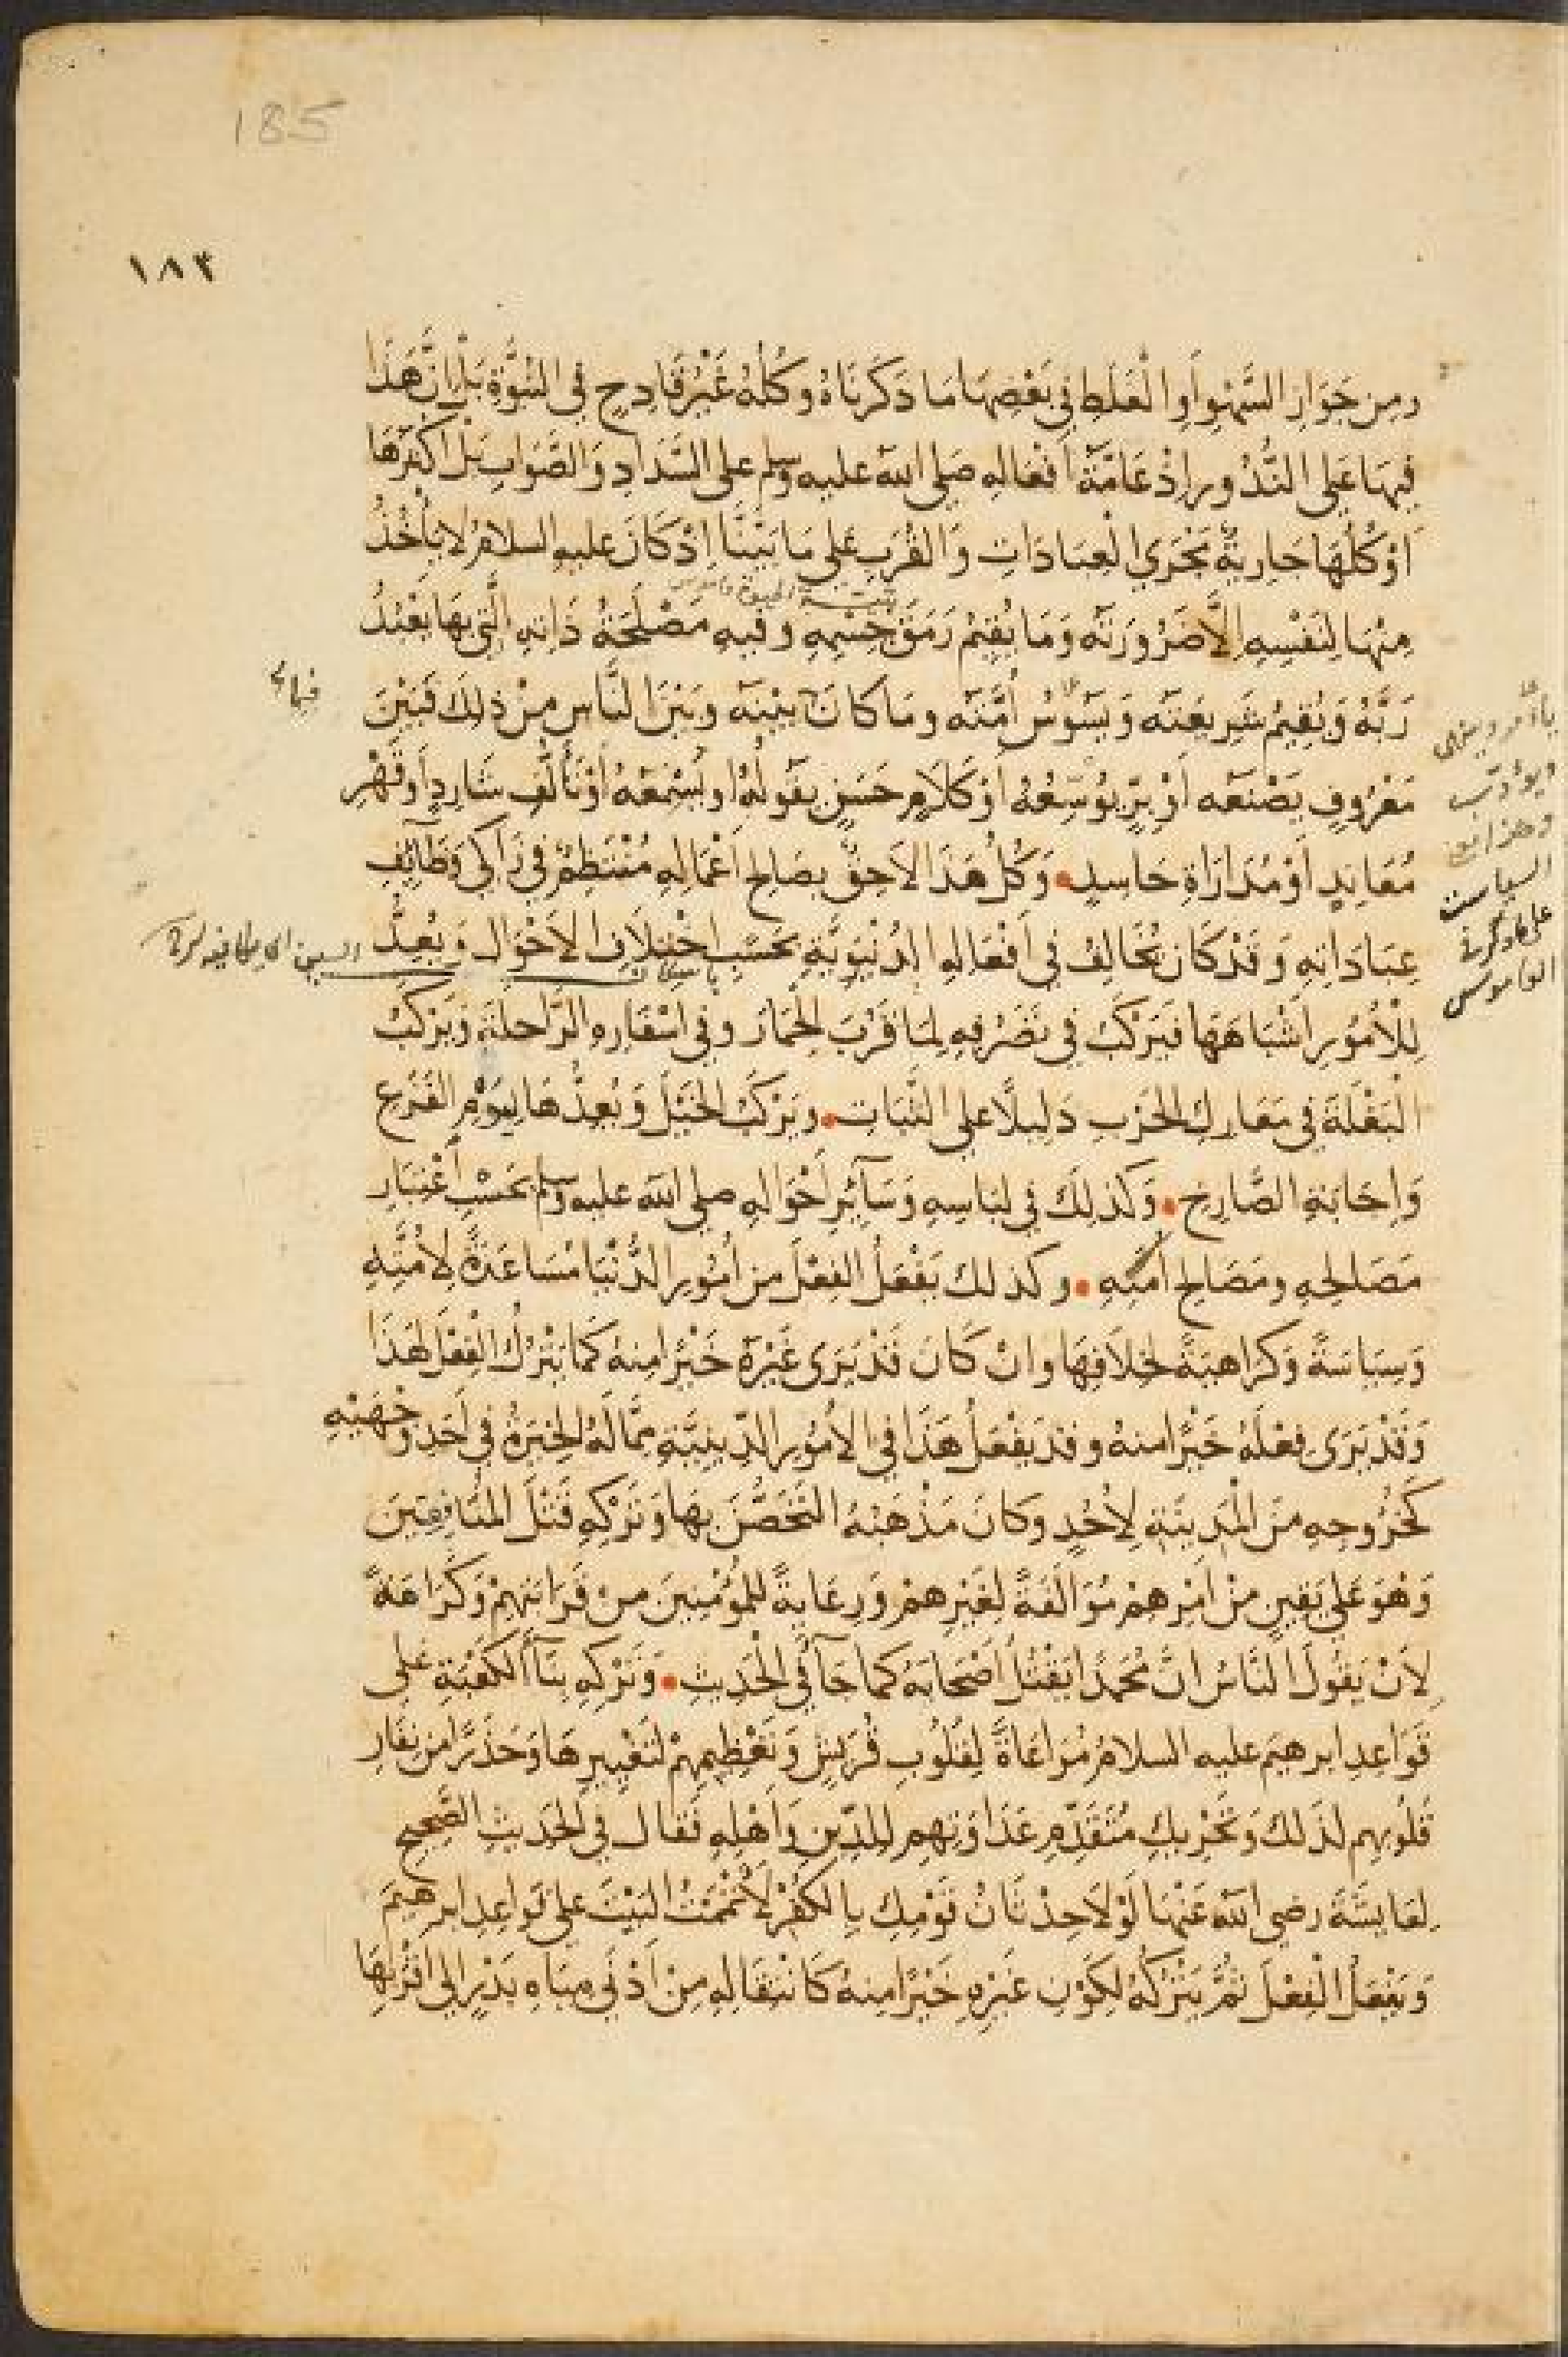 185
١٨٣
ومِن جَوَازِ السَّهْوِ أَوِ الْغَلَطِ فِي بَعْضِهَا مَا ذَكَرْنَاهُ وكُلُّهُ غَيْرُ قَادِحٍ فِي النُّبُوَّةِ بَلْ إِنَّ هَذَا
فِيهَا عَلَى النُّدُورِ إِذْ عَامَّةُ أَفْعَالِهِ صَلَّى الله عليه وسلم على السَّدَادِ وَالصَّوَابِ بَلْ أَكْثَرُهَا
أَوْ كُلُّهَا جَارِيَةٌ مَجْرَي الْعِبَادَاتِ وَالقُرَبِ عَلَى مَا بَيَّنَّا إِذْ كَانَ عليه السلامُ لا يَأْخُذُ
مِنْهَا لِنَفْسِهِ إِلَّا ضَرُورَتَهُ وَمَا يُقِيمُ رَمَقَ جِسْمِهِ وفيهِ مَصْلَحَةُ ذَاتِهِ الَّتِي بِهَا يَعْبُدُ
رَبَّهُ وَيُقِيمُ شَرِيعَتَهُ وَيَسُوسُ أُمَّتَهُ ومَا كَانَ بَيْنَهُ وبَيْنَ النَّاسِ مِنْ ذلِكَ فَبَيْنَ
مَعْرُوفٍ يَصْنَعُه أَوْ بِرٍّ يُوَسِّعُهُ أَوْ كَلَامٍ حَسَنٍ يَقُولُهُ أو يُسْمِعُهُ أَوْ تَأَلُّفِ شَارِدٍ أَو قَهْرِ
مُعَانِدٍ أَوْ مُدَارَاةِ حَاسِدٍ وَكُلُّ هَذَا لاَحِقٌ بِصَالِحِ أَعْمَالِهِ مُنْتَظِمٌ فِي زَاكِي وَظَائِفِ
عِبَادَاتِهِ وَقَدْ كَانَ يُخَالِفُ فِي أَفْعَالِهِ الدُّنْيَوِيَّةِ بِحَسَبِ اخْتِلاَفِ الأَحْوَالِ وَيُعِدُّ
لِلْأُمُورِ أَشْبَاهَهَا فَيَرْكَبُ فِي تَصَرُّفِهِ لِمَا قَرُبَ الحِمَارَ وفِي أَسْفَارِهِ الرَّاحِلَةَ وَيَرْكَبُ
الْبَغْلَةَ فِي مَعَارِكِ الحَرْبِ دَلِيلًا على الثَّبَاتِ ويَرْكَبُ الخَيْلَ وَيُعِدُّهَا لِيَوْمِ الفَزَعِ
وَإِجَابَةِ الصَّارِخِ وَكَذلِكَ فِي لِبَاسِهِ وَسَائِرِ أَحْوَالِهِ صلى الله عليه وسلم بحَسْبِ اعْتِبَارِ
مَصَالِحِهِ ومَصَالِحِ أُمَّتِهِ وكذلك يَفْعَلُ الفِعْلَ مِنْ أُمُورِ الدُّنْيَا مُسَاعَدَةً لِأُمَّتِهِ
وَسِيَاسَةً وَكَرَاهِيَةً لِخِلاَفِهَا وانْ كَانَ قَدْ يَرَى غَيْرَهُ خَيْرًا مِنهُ كَمَا يَتْرُكُ الْفِعْلَ لِهَذَا
وَقَدْ يَرَى فِعْلَهُ خَيْرًا منهُ وقد يَفْعَلُ هَذَا فِي الأُمُورِ الدِّينِيَّةِ مِمَّا لَهُ الخِيَرَةُ فِي أَحَدِ وَجْهَيْهِ
كَخُرُوجِهِ مِنَ الْمَدِينَةِ لِأُحُدٍ وكَانَ مَذْهَبُهُ التَّحَصُّنَ بِهَا وَتَرْكِهِ قَتْلَ المُنَافِقِينَ
وَهْوَ عَلى يَقِينٍ مِنْ أَمْرِهِمْ مُؤَالَفَةً لِغَيْرِهِمْ وَرِعَايَةً لِلْمُؤْمِنِينَ مِنْ قَرَابَتِهِمْ وَكَرَاهَةً
لِأَنْ يَقُولَ النَّاسُ انَّ مُحَمَّدًا يَقْتُلُ أَصْحَابَهُ كما جَآ فِي الْحَدِيثِ وَتَرْكِهِ بِنَآ الكَعْبَةِ على
قَوَاعِدِ ابرهيمَ عليه السلامُ مُرَاعَاةً لِقُلُوبِ قُرَيْشٍ وَتَعْظِيمِهِمْ لِتَغْيِيرِهَا وَحَذَرًا مِن نِفَارِ
قُلُوبِهِم لِذَلكَ وَتَحْرِيكِ مُتَقَدِّمِ عَدَاوَتِهِم لِلدِّينِ وَأَهْلِهِ فَقَالَ فِي الحَدِيثِ الصَّحِيحِ
لِعَايِشَةَ رضي الله عَنْهَا لَوْلاَ حِدْثَانُ قَوْمِكِ بِالكُفْرِ لَأَتْمَمْتُ البَيْتَ على قَوَاعِدِ ابرهيمَ
وَيَفْعَلُ الْفِعْلَ ثُمَّ يَتْرُكُهُ لِكَوْنِ غَيْرِهِ خَيْرًا مِنهُ كَانْتِقَالِهِ مِنْ أَدْنَى مِيَاهِ بَدْرٍ إلى أَقْرَبِهَا